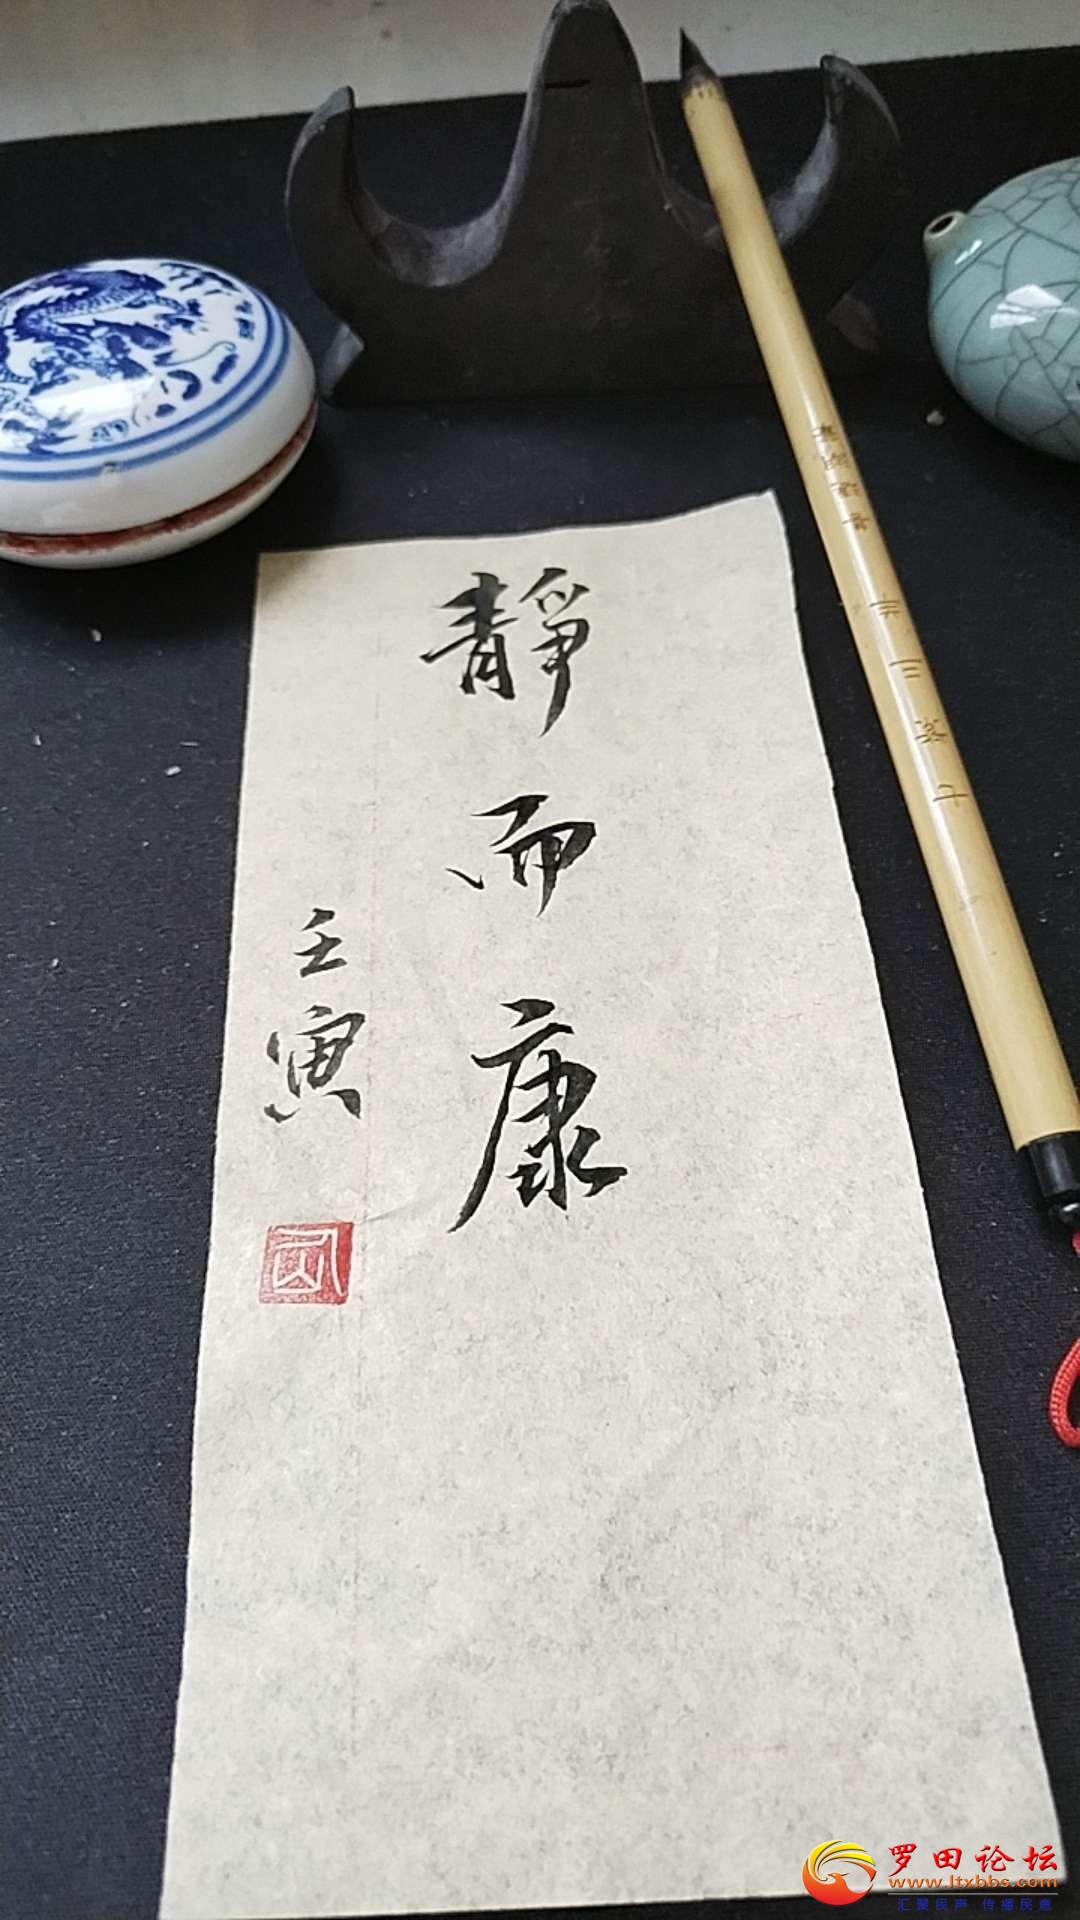 靜而康
壬寅
罗田论坛
www.ltxbbs.com
汇聚民声 传播民意